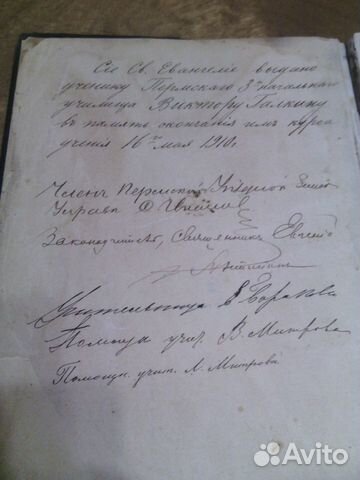 Сіе Св. Евангеліе выдано
ученику Пермскаго 3го начальнаго
училища Виктору Галкину
въ память окончанія имъ курса
ученія 16го мая 1910 г.
Членъ Пермской Уѣздной Земск
Управы
Законоучитель, священникъ Евгеній
Учительница Е.
Помощн. учит. В. Митрова
Помощн. учит. А. Митрова
Avito